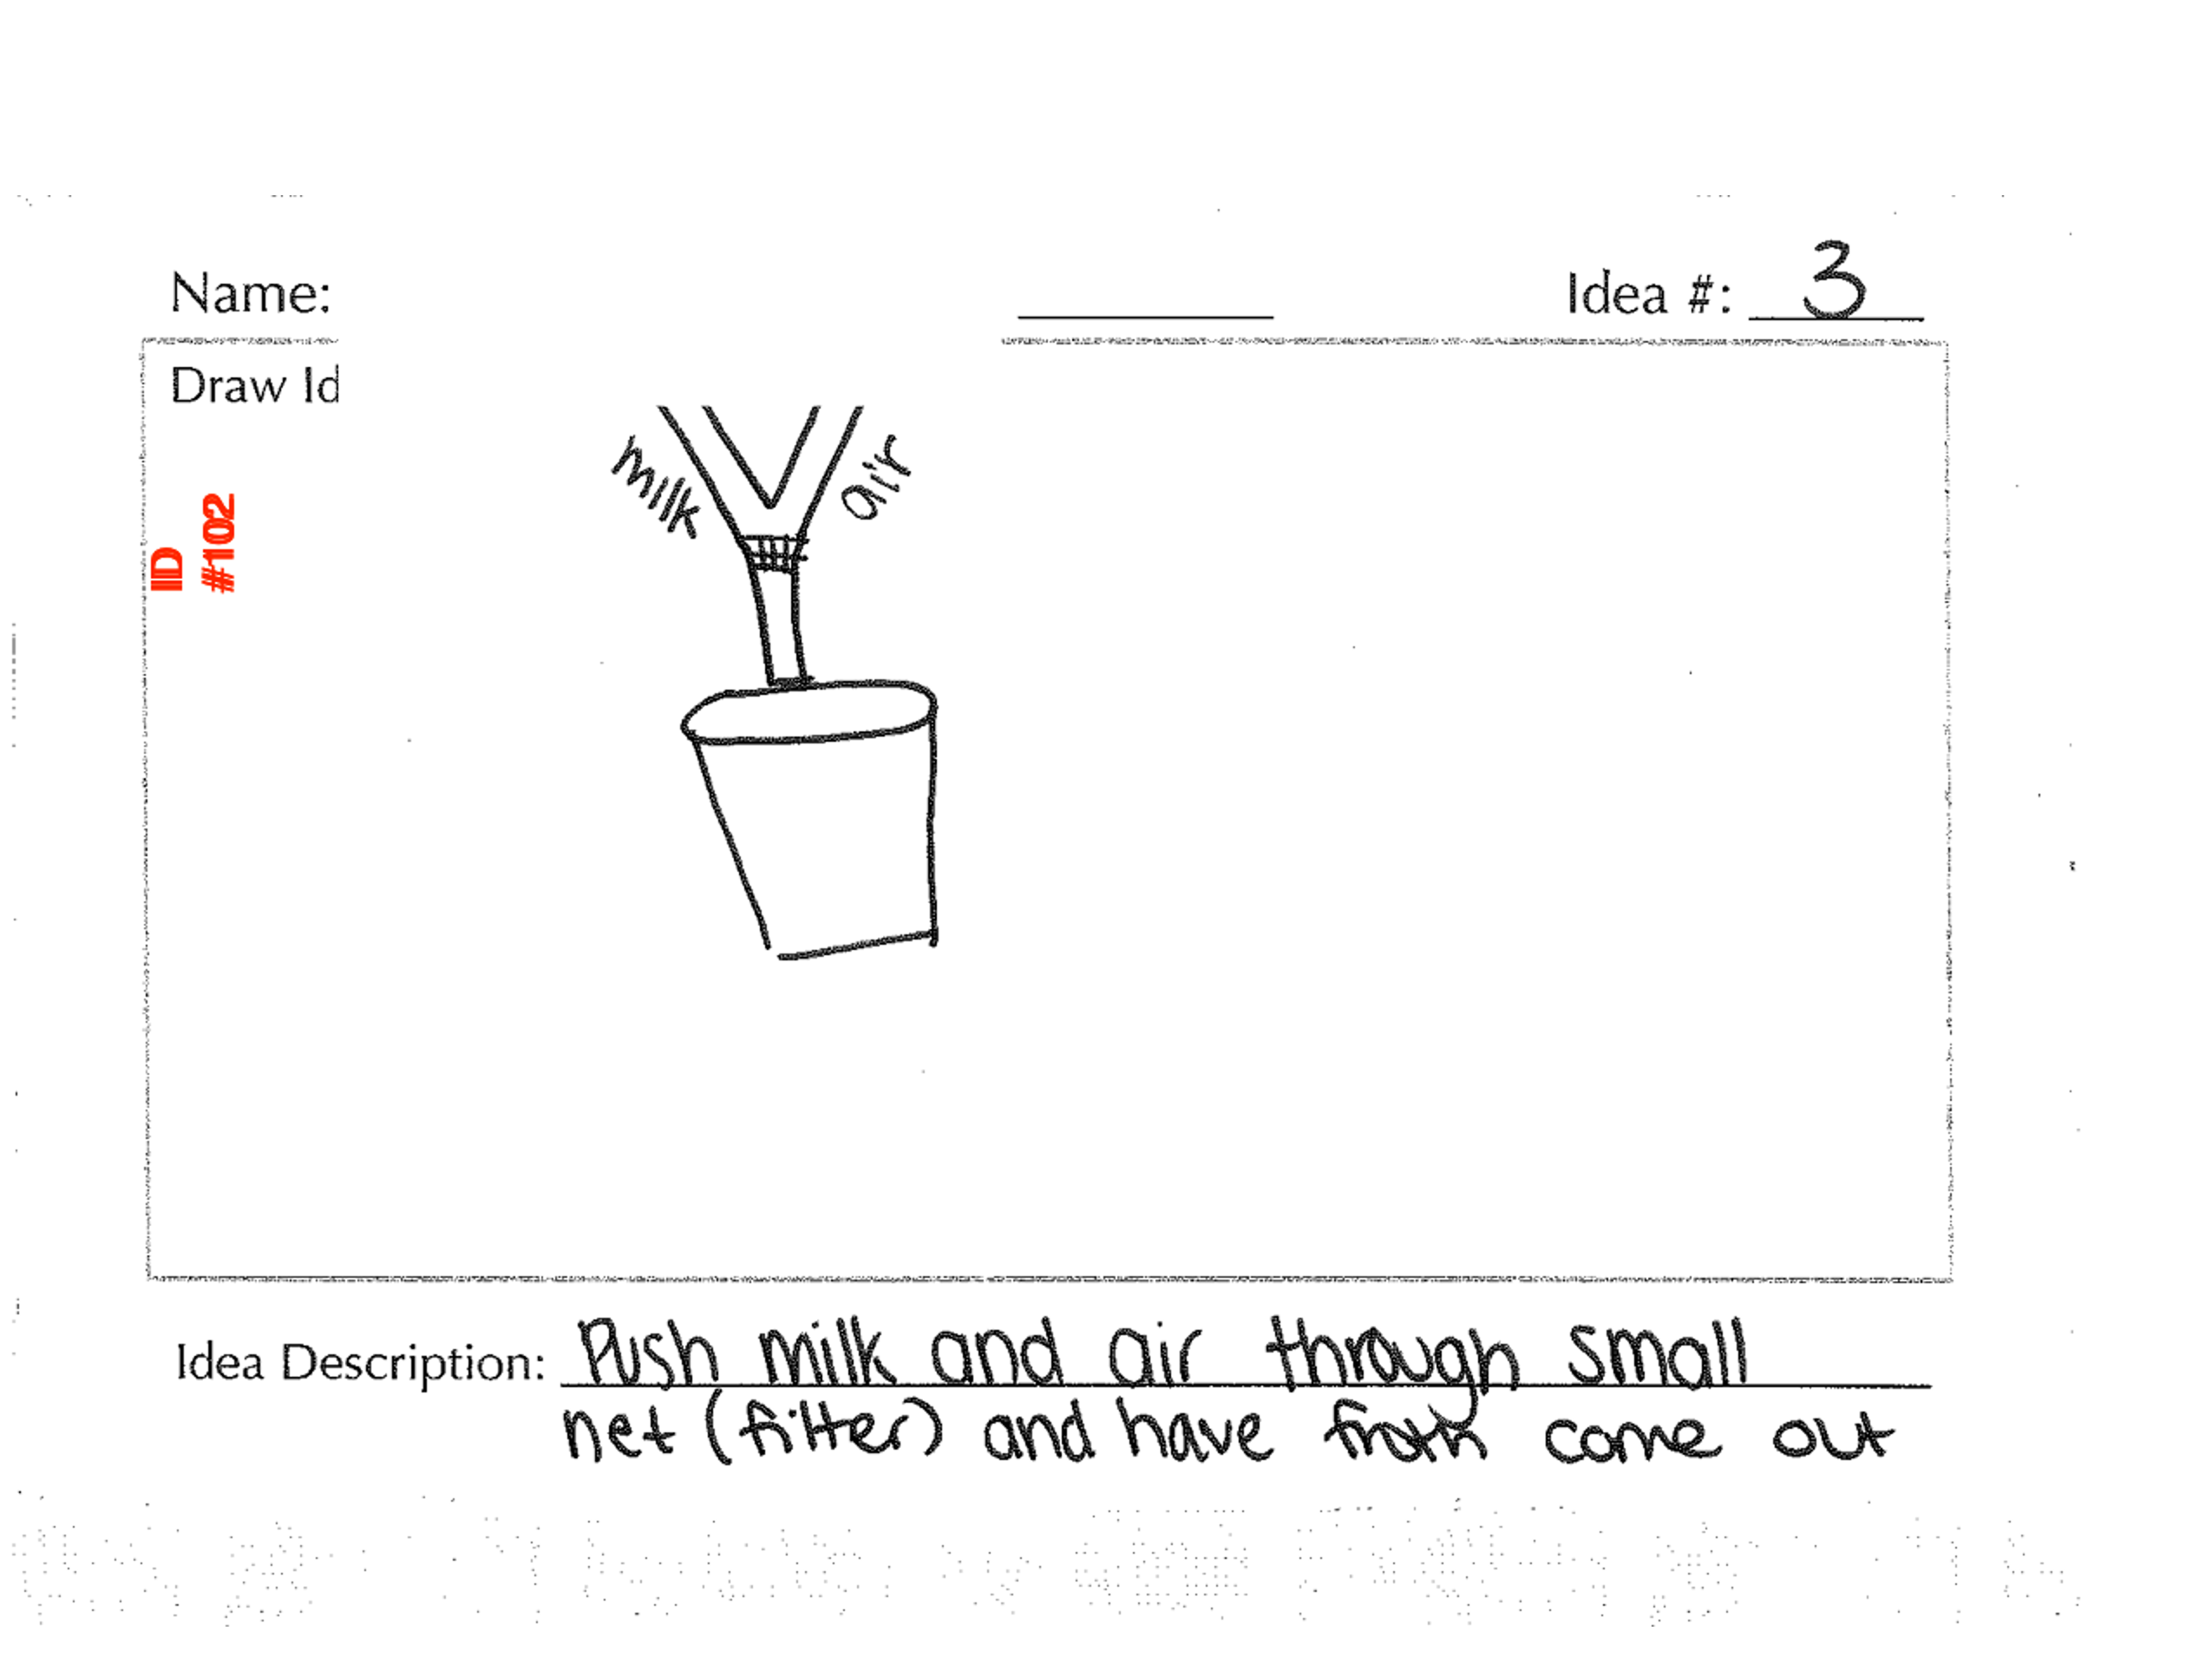 Name:
Idea #: 3
Draw Id
ID
#102
milk
air
Idea Description: Push milk and air through small
net (filter) and have froth come out